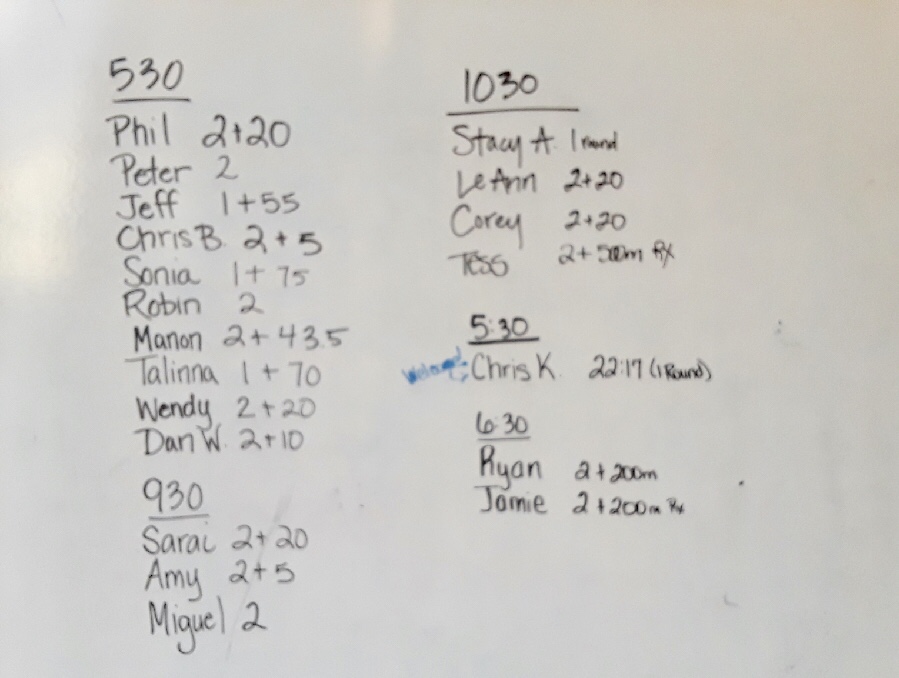 530
Phil 2+20
Peter 2
Jeff 1+55
Chris B. 2+5
Sonia 1+75
Robin 2
Manon 2+43.5
Talinna 1+70
Wendy 2+20
Dan W. 2+10
930
Sarai 2+20
Amy 2+5
Miguel 2
1030
Stacy A. 1 round
LeAnn 2+20
Corey 2+20
Tess 2+500m Rx
5:30
Chris K. 22:17 (1 Round)
6:30
Ryan 2+200m
Jamie 2+200m Rx